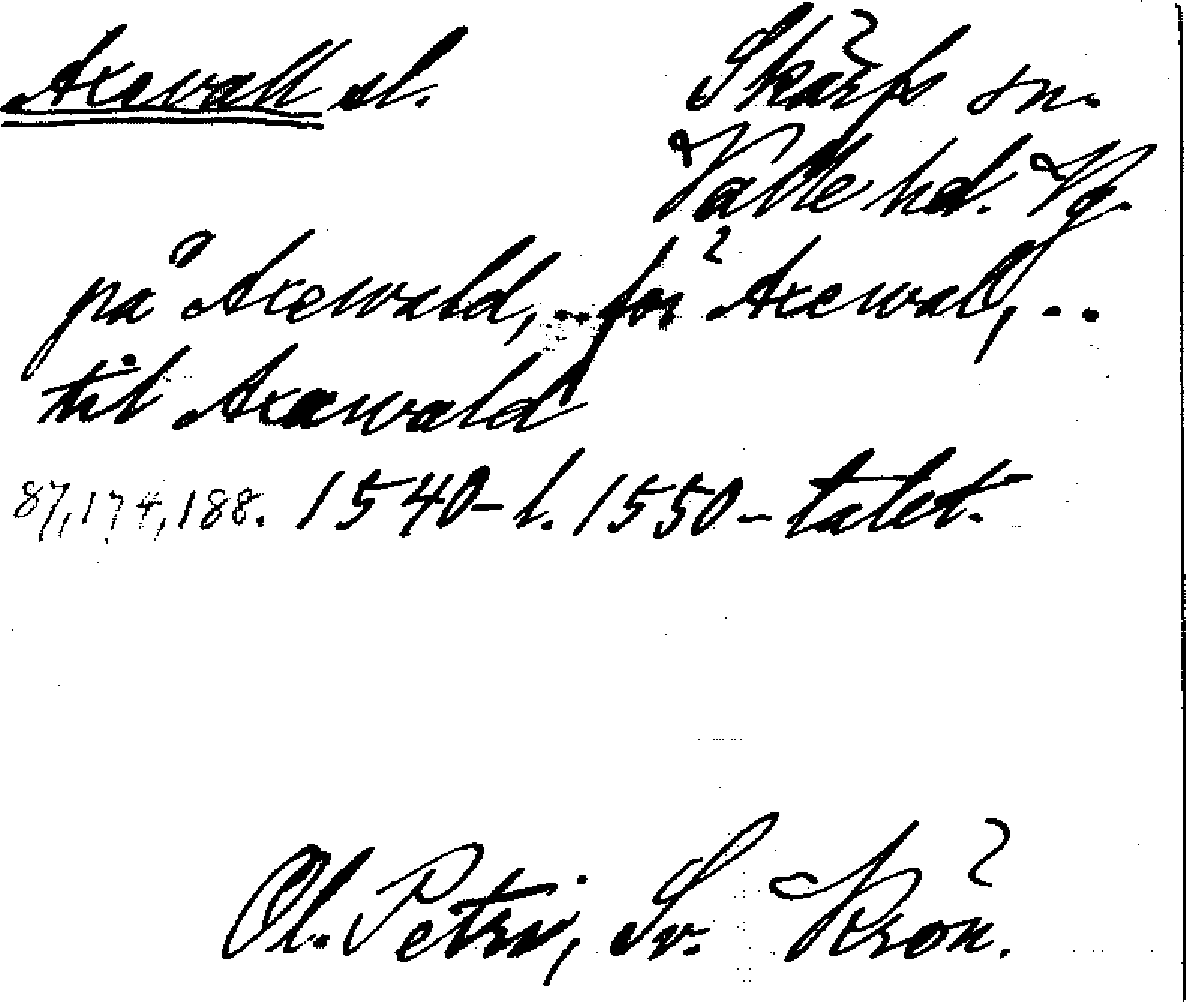 Axewall sl. Skärfs sn.
Valle hd. Vg.
på Axewald, .. för Axewal, ..
til Axewald
87, 174, 188. 1540- l. 1550-talet.
Ol. Petri, Sv. Krön.